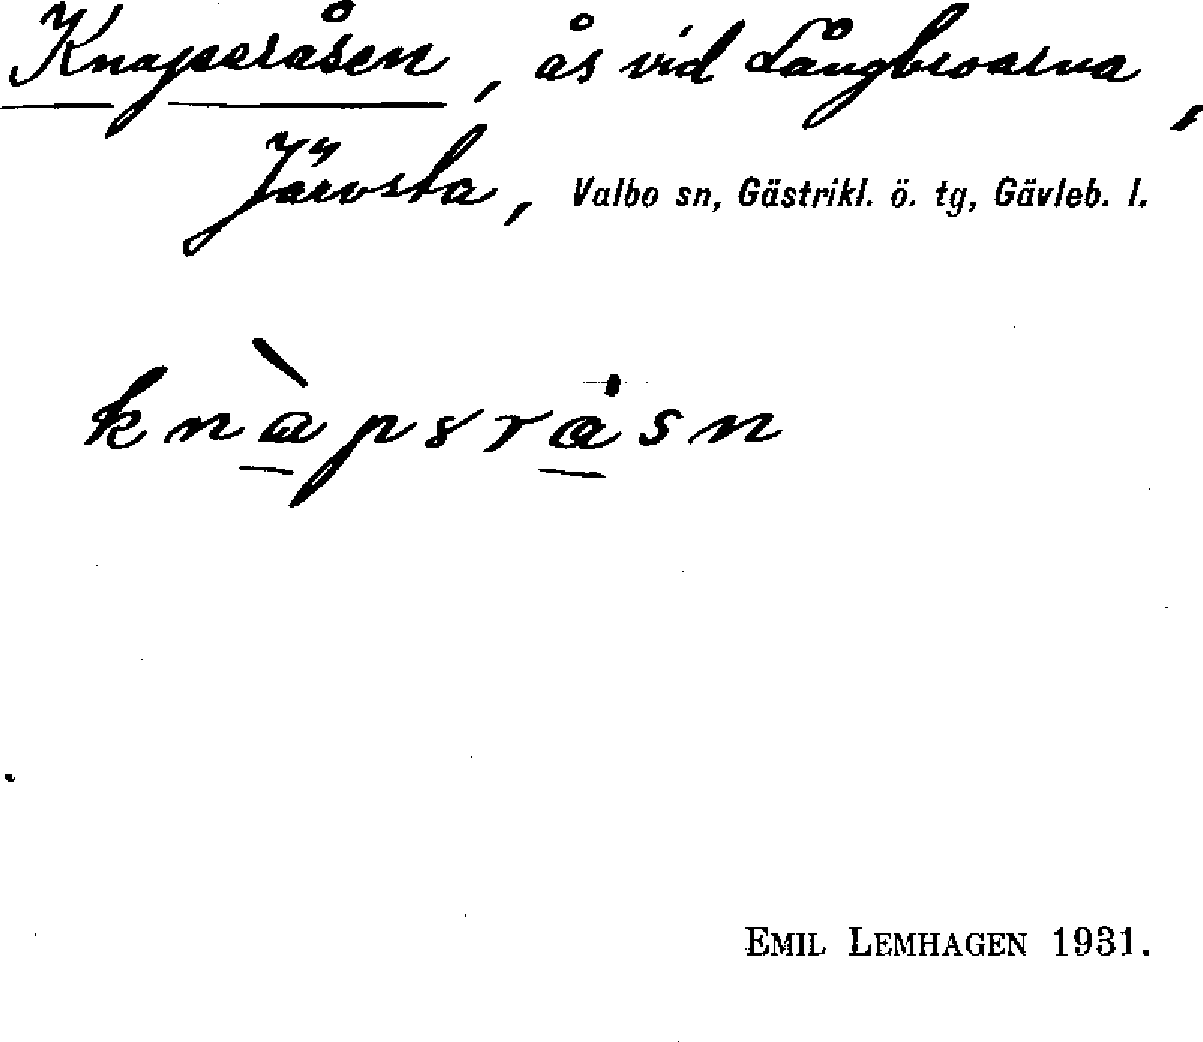 Knaperåsen, ås vid Långbroarna,
Järvsta, Valbo sn, Gästrikl. ö. tg, Gävleb. l.
EMIL LEMHAGEN 1931.